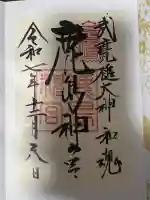 武甕槌大神 和魂
鹿島神宮
令和七年十二月六日